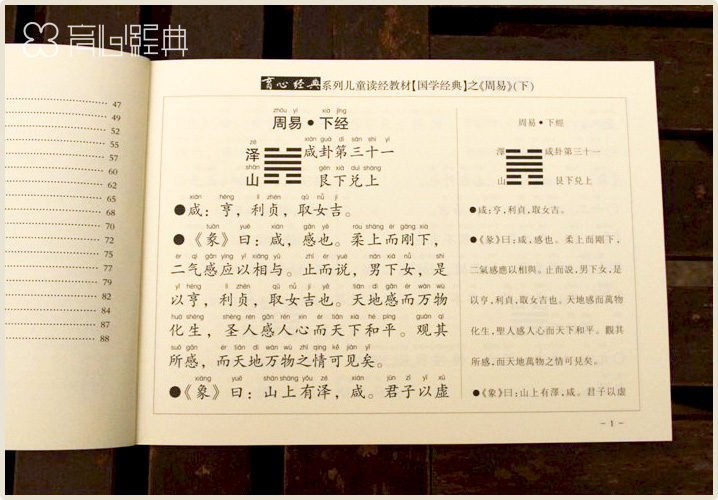 育心經典
47
49
52
55
57
60
62
65
68
70
72
75
77
79
82
84
87
88
育心经典系列儿童读经教材【国学经典】之《周易》(下)
zhōu yì xià jīng
周易·下经
zé xián guà dì sān shí yī
泽 咸卦第三十一
shān gèn xià duì shàng
山 艮下兑上
xián hēng lì zhēn qǔ nǚ jí
●咸：亨，利贞，取女吉。
tuàn yuē xián gǎn yě róu shàng ér gāng xià
●《彖》曰：咸，感也。柔上而刚下，
èr qì gǎn yìng yǐ xiāng yǔ zhǐ ér yuè nán xià nǚ shì
二气感应以相与。止而说，男下女，是
yǐ hēng lì zhēn qǔ nǚ jí yě tiān dì gǎn ér wàn wù
以亨，利贞，取女吉也。天地感而万物
huà shēng shèng rén gǎn rén xīn ér tiān xià hé píng guān qí
化生，圣人感人心而天下和平。观其
suǒ gǎn ér tiān dì wàn wù zhī qíng kě jiàn yǐ
所感，而天地万物之情可见矣。
xiàng yuē shān shàng yǒu zé xián jūn zǐ yǐ xū
●《象》曰：山上有泽，咸。君子以虚
周易·下經
澤 咸卦第三十一
山 艮下兑上
●咸：亨，利貞，取女吉。
●《彖》曰：咸，感也。柔上而剛下，
二氣感應以相與。止而說，男下女，是
以亨，利貞，取女吉也。天地感而萬物
化生，聖人感人心而天下和平。觀其
所感，而天地萬物之情可見矣。
●《象》曰：山上有澤，咸。君子以虛
- 1 -